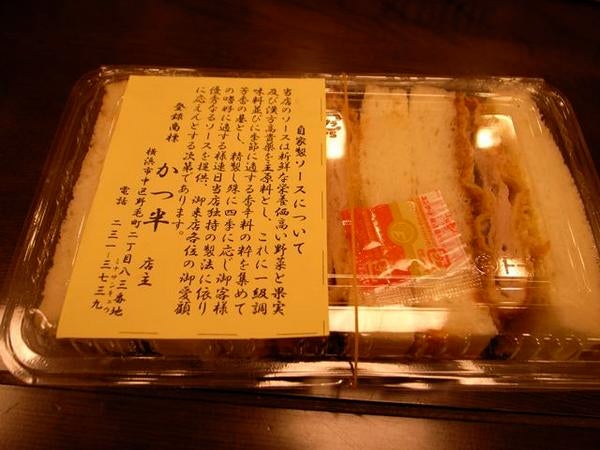 自家製ソースについて
当店のソースは新鮮な栄養価高い野菜と果実
及び漢方高貴薬を主原料とし、これに一級調
味料並びに季節に適する香辛料の粋を集めて
芳香の豊とし、精製し殊に四季に応じ御客様
の嗜好に適する様連日当店独特の製法に依り
優秀なるソースを提供、御来店各位の御愛顧
に応えんとする次第であります。
登録商標
かつ半 店主
横浜市中区野毛町二丁目八三番地
電話 二三一-三七三九